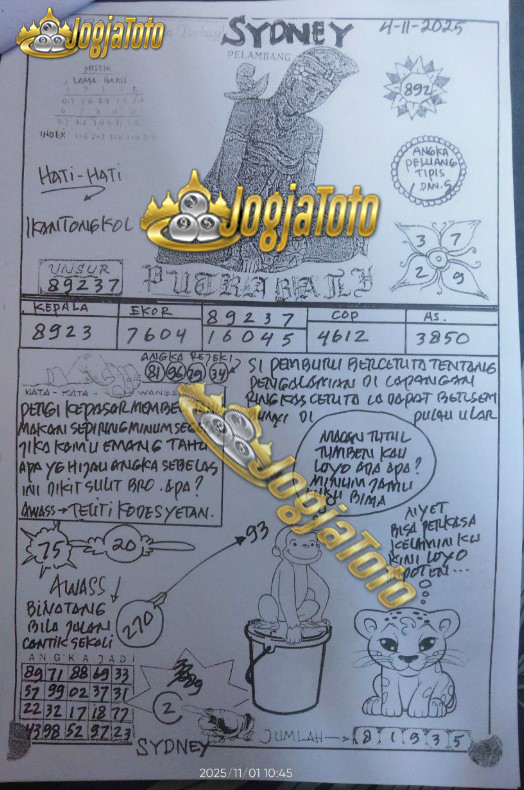 JogjaToto
SYDNEY
4-11-2025
PELAMBANG
MISTIK
LAMA BARU
INDEX
892
HATI-HATI
ANGKA
PELUANG
TIPIS
1 DAN.5
IKAN TONGKOL
JogjaToto
3 7
2 9
UNSUR
89237
PUTRI BALI
KEPALA
EKOR
89237
COP
AS.
8923
7604
16045
4612
3850
ANGKA REJEKI
81 96 29 34
KATA-KATA-WANGS
PERGI KEPASAR MEMBE
MAKAN SEPIRING MINUM SEG
JIKA KAMU EMANG TAHU
APA YG HIJAU ANGKA SEBELAS
INI DIKIT SULIT BRO. APA?
AWASS TELITI KODE SYETAN.
SI PEMBURU BERCERITA TENTANG
PENGALAMAN DI LAPANGAN
RINGKAS CERITA IA DAPAT BERSEM
DI PULAU ULAR
JogjaToto
MACAN TUTUL
TUMBEN KAU
LOYO ADA APA?
MINUM JAMU
BIMA
NYET
BISA PERKASA
KELAMIN KU
KINI LOYO
POTEN...
75
20
93
AWASS
BINATANG
BILA JALAN
CANTIK SEKALI
270
ANGKA JADI
89 71 88 69 33
57 99 02 37 31
22 32 17 18 77
43 98 52 97 23
89
2
SYDNEY
JUMLAH
8 1 9 3 5
2025/11/01 10:45